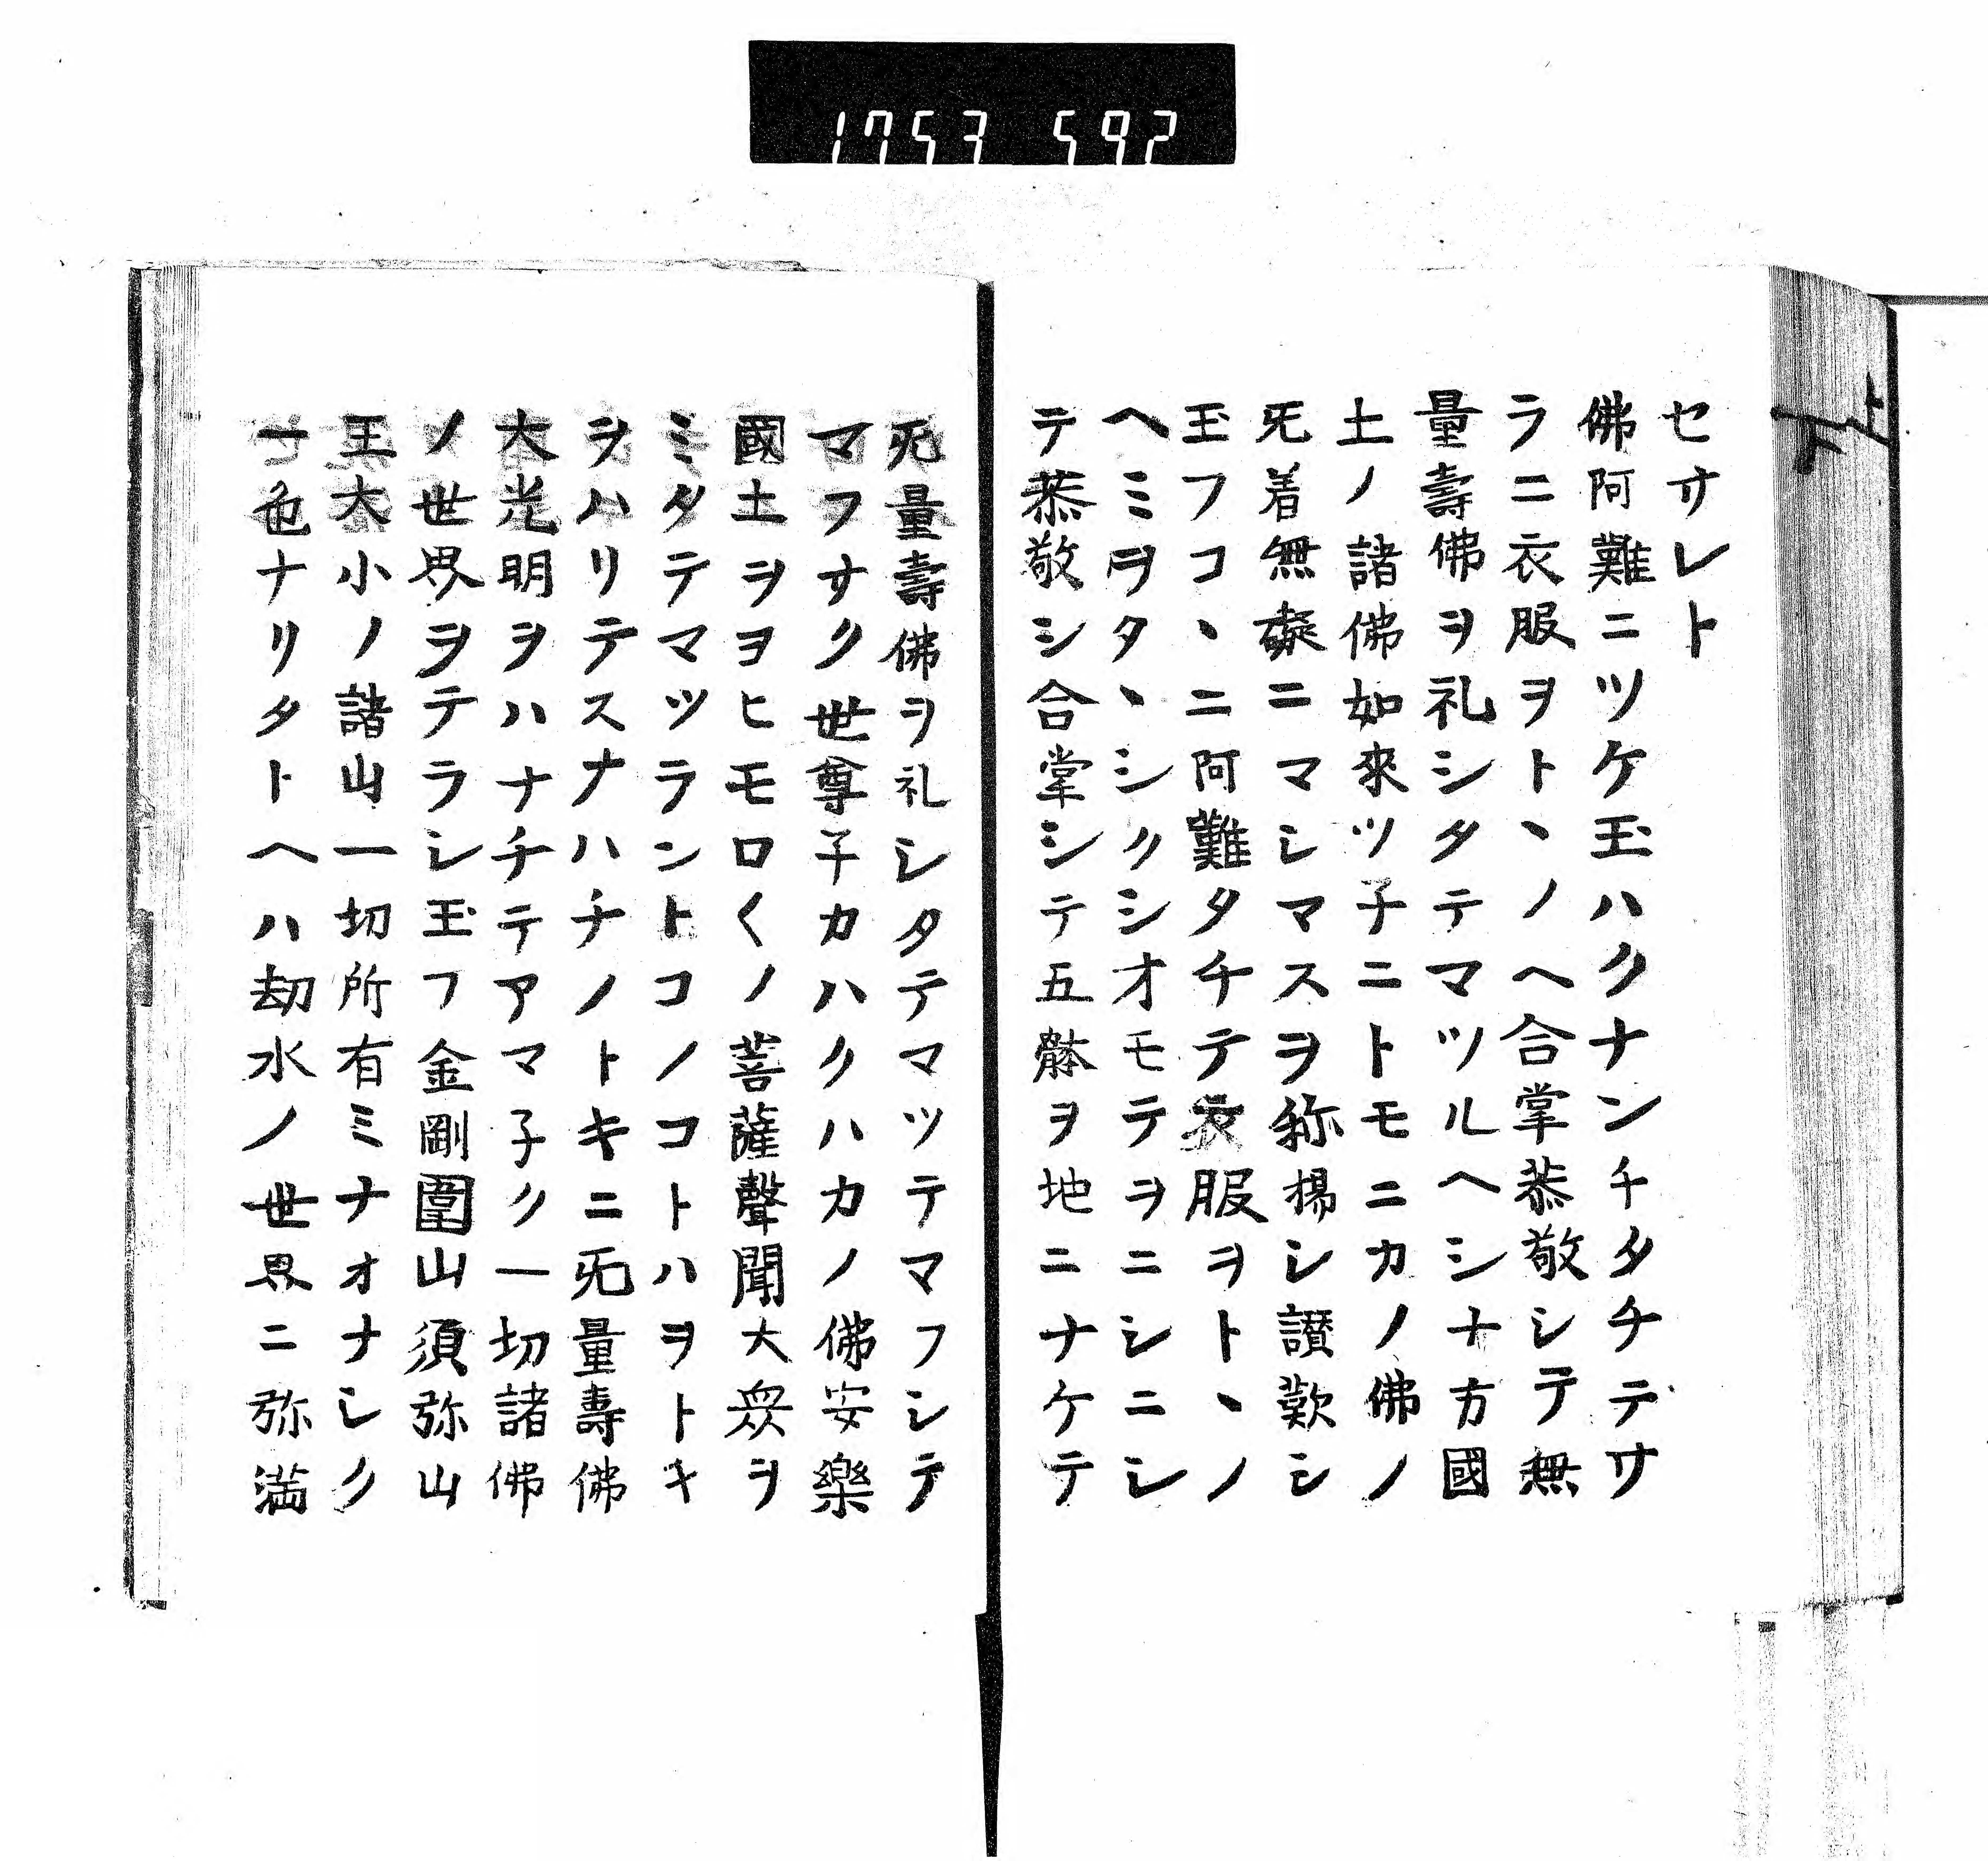 1753 592
セサレト
佛阿難ニツケ玉ハクナンチタチテサ
ラニ衣服ヲトヽノヘ合掌恭敬シテ無
量壽佛ヲ礼シタテマツルヘシ十方國
土ノ諸佛如來ツ子ニトモニカノ佛ノ
无着無礙ニマシマスヲ称揚シ讃歎シ
玉フコヽニ阿難タチテ衣服ヲトヽノ
ヘミヲタヽシクシオモテヲニシニシ
テ恭敬シ合掌シテ五骵ヲ地ニナケテ
无量壽佛ヲ礼シタテマツテマフシテ
マフサク世尊子カハクハカノ佛安樂
國土ヲヨヒモロ〱ノ菩薩聲聞大衆ヲ
ミタテマツラントコノコトハヲトキ
ヲハリテスナハチノトキニ无量壽佛
大光明ヲハナチテアマ子ク一切諸佛
ノ世界ヲテラシ玉フ金剛圍山須弥山
王大小ノ諸山一切所有ミナオナシク
一色ナリタトヘハ劫水ノ世界ニ弥満
上下